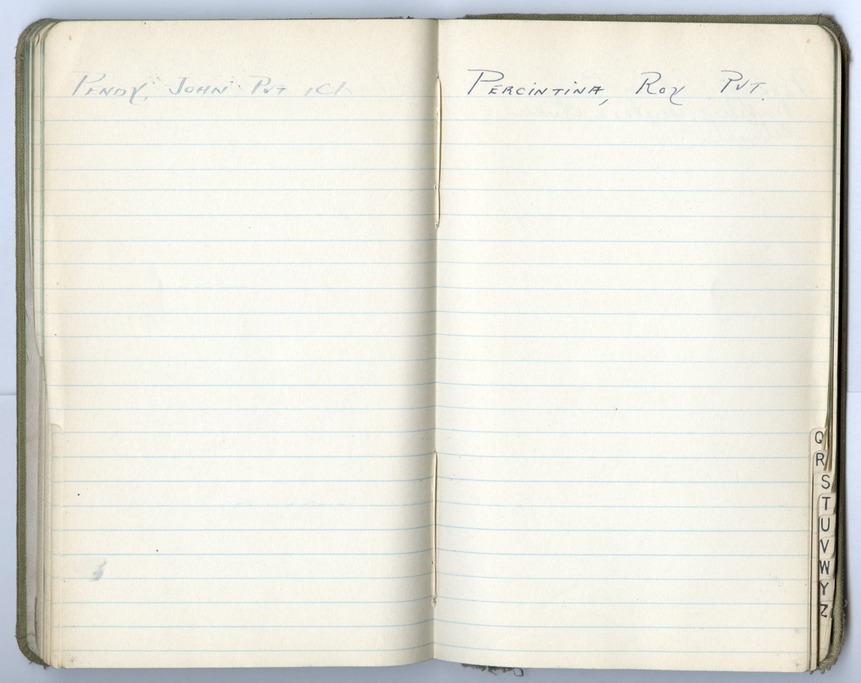 PENDY, JOHN PVT 1Cl
PERCINTINA, ROY PVT.
Q
R
S
T
U
V
W
Y
Z